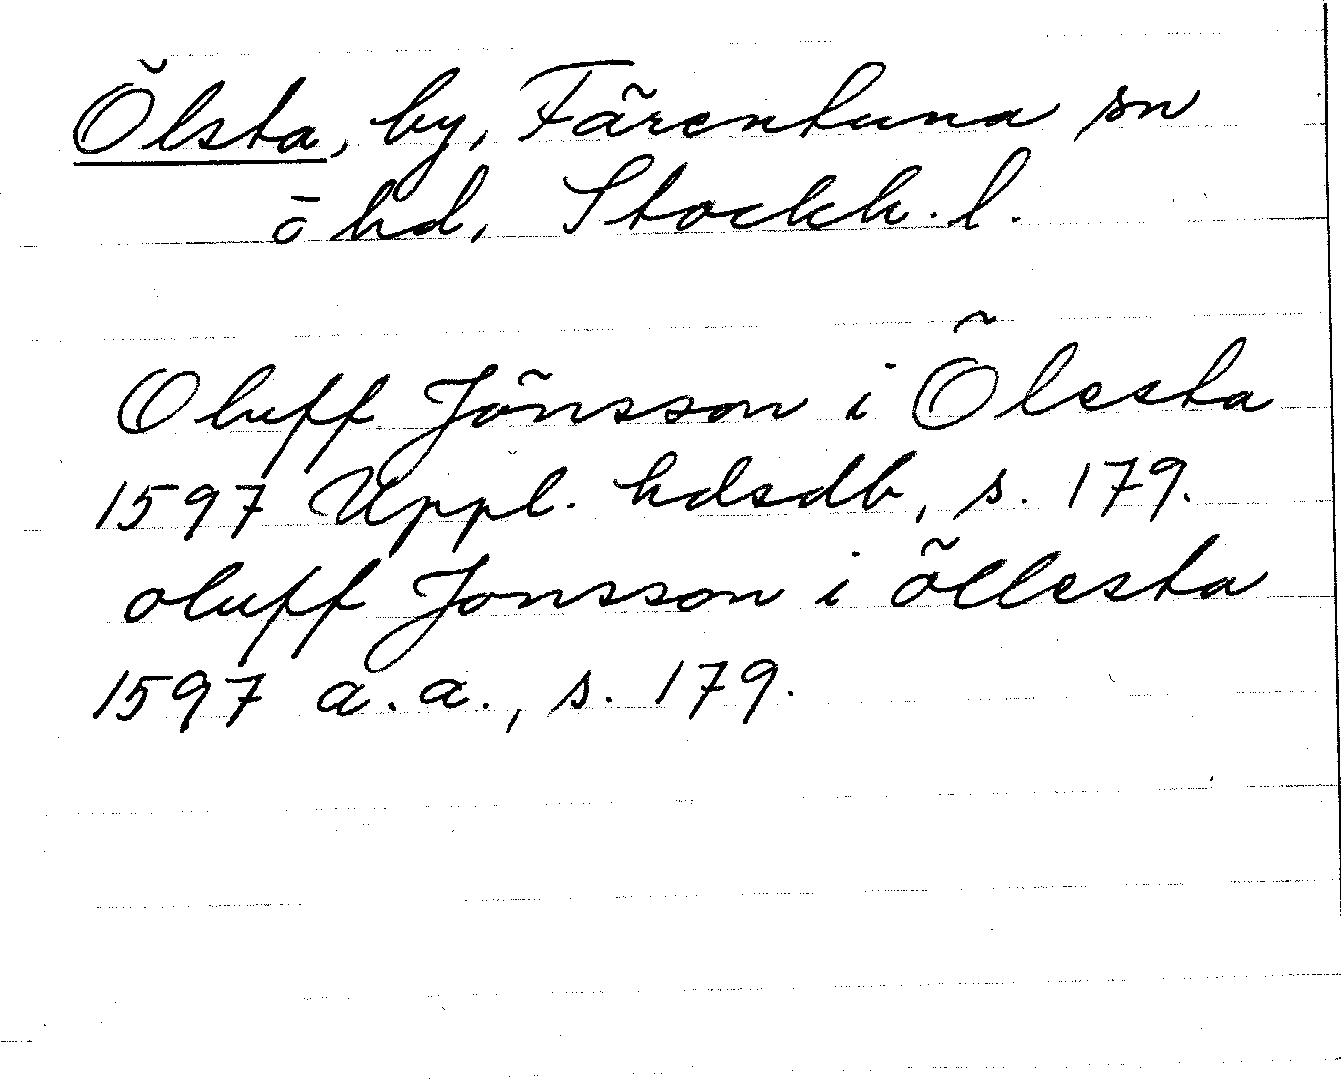 Ölsta, by, Färentuna sn
o hd, Stockh. l.
Oluff Jönsson i Ölesta
1597 Uppl. hdsdb, s. 179.
oluff Jonsson i öllesta
1597 a.a., s. 179.